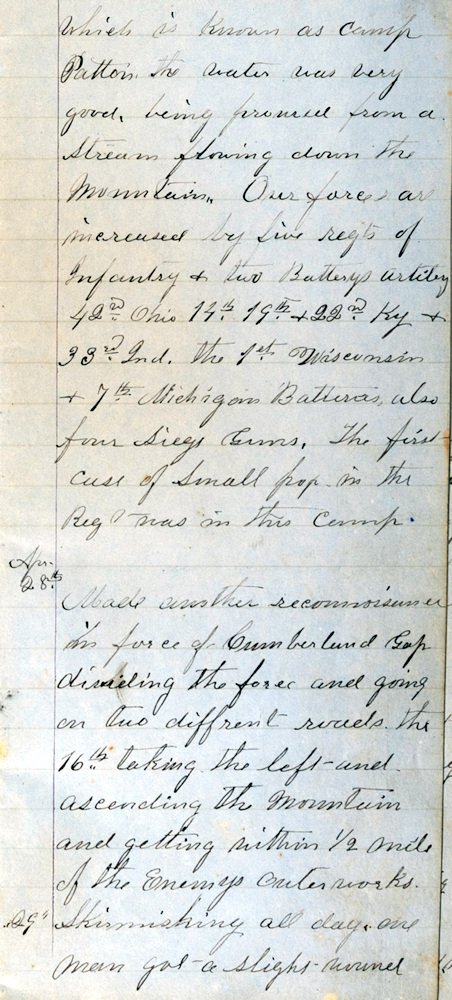 which is known as camp
Patton the water was very
good, being procured from a
stream flowing down the
Mountain,, Our forces are
increased by five regts of
Infantry & two Batterys artilery
42nd Ohio 14th 19th & 22nd Ky &
33rd Ind. the 1st Wisconsin
& 7th Michigan Batteries, also
four Siege Guns. The first
case of small pox in the
Regt was in this camp.
Apr. 28th
Made another reconnoisance
in force of Cumberland Gap
dividing the force and going
on two diffrent roads. the
16th taking the left and
ascending the Mountain
and getting within 1/2 mile
of the Enemys outer works.
29" Skirmishing all day. one
man got a slight wound